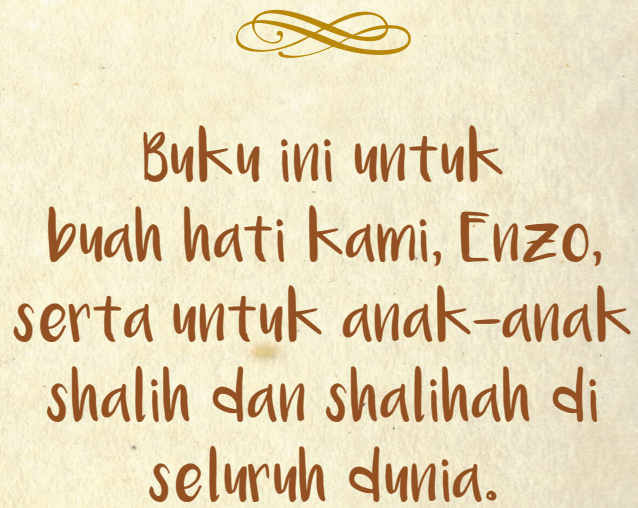 Buku ini untuk
buah hati kami, Enzo,
serta untuk anak-anak
shalih dan shalihah di
seluruh dunia.